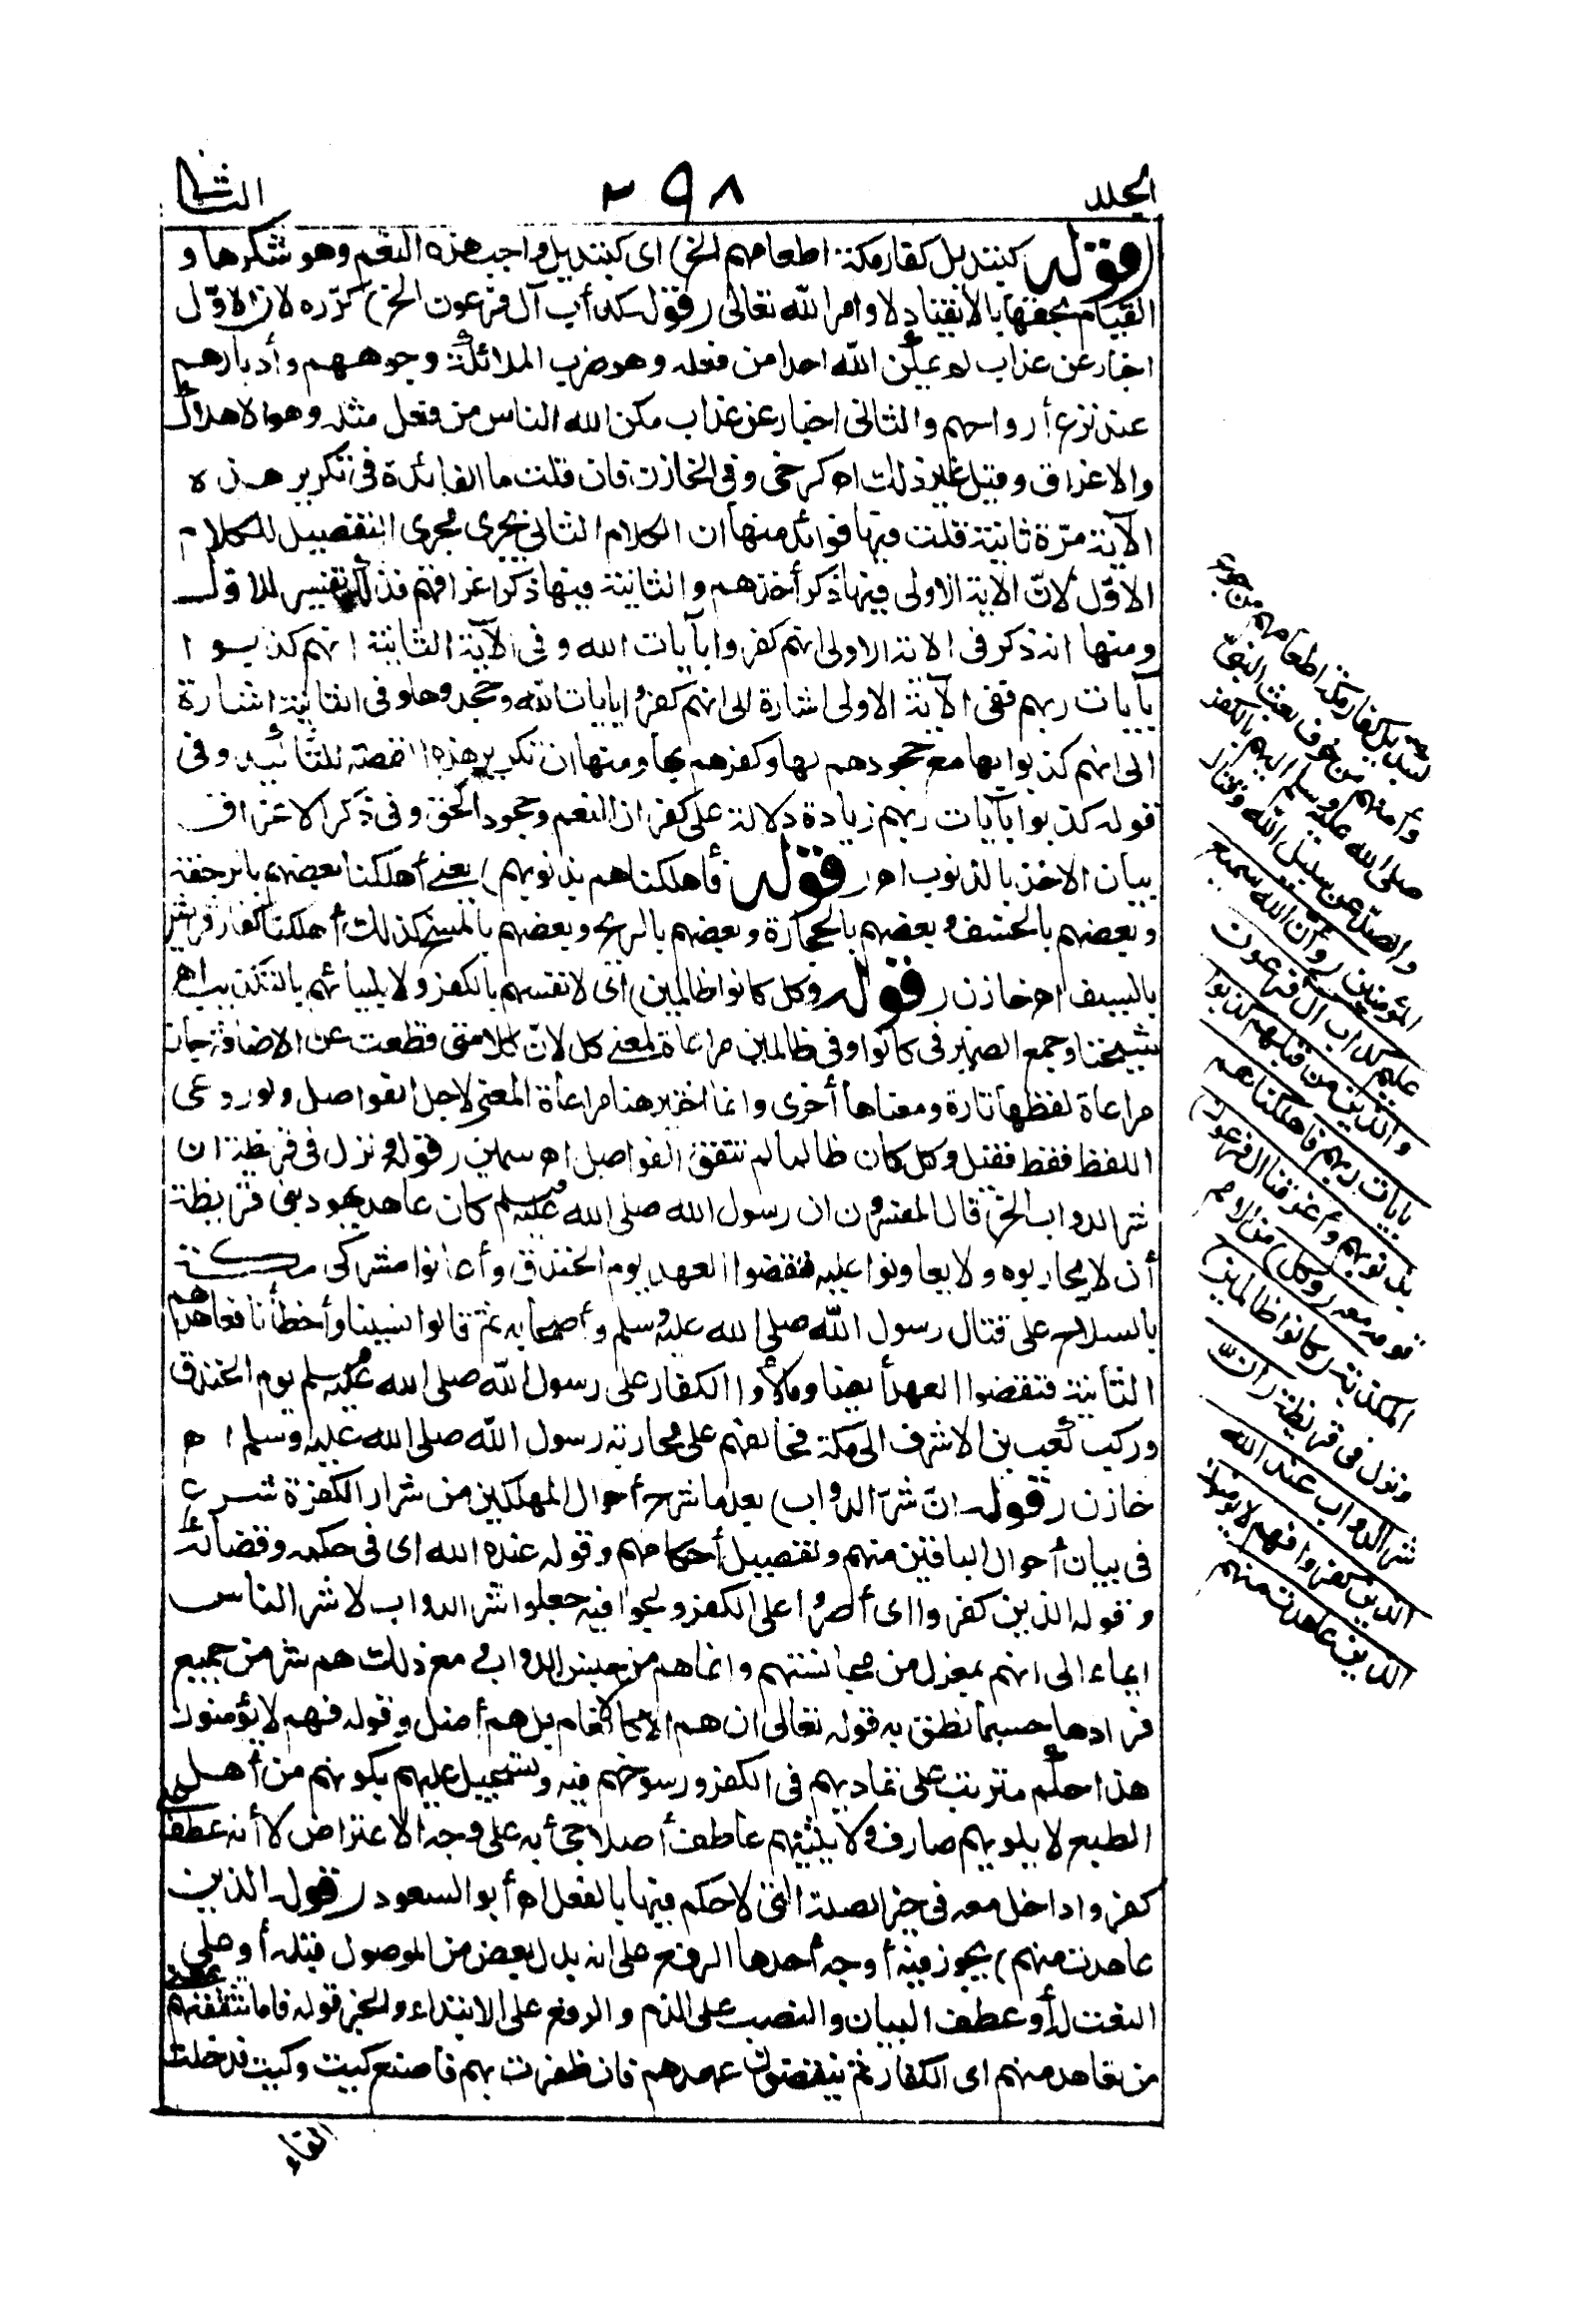 الجلد
٢٩٨
الثانى
(قوله كتبديل كفار مكة اطعامهم الخ) اى كتبديل واجب هذه النعم وهو شكرها و
القيام بحقها بالانقياد لاوامر الله تعالى (قوله كدأب آل فرعون الخ) كرّره لان الاوّل
اخبار عن عذاب لم يمكّن الله احدا من فعله وهو ضرب الملائكة وجوههم وأدبارهم
عند نزع أرواحهم والثانى اخبار عن عذاب مكن الله الناس من فعل مثله وهو الاهلاك
والاغراق وقيل غير ذلك اه كرخى وفى الخازن فان قلت ما الفائدة فى تكرير هذه
الآية مرّة ثانية قلت فيها فوائد منها ان الكلام الثانى يجرى مجرى التفصيل للكلام
الاوّل لانّ الاية الاولى فيها ذكر أخذهم والثانية فيها ذكر اغراقهم فذلك تفسير للاول
ومنها انه ذكر فى الاية الاولى انهم كفروا بآيات الله وفى الآية الثانية انهم كذبوا
بآيات ربهم ففى الآية الاولى اشارة الى انهم كفروا بايات الله وجحدوها وفى الثانية اشارة
الى انهم كذبوا بها مع جحودهم لها وكفرهم بها ومنها ان تكرير هذه القصة للتأكيد وفى
قوله كذبوا بآيات ربهم زيادة دلالة على كفران النعم وجحود الحق وفى ذكر الاغراق
بيان الاخذ بالذنوب اه (قوله فأهلكناهم بذنوبهم) يعنى أهلكنا بعضهم بالرجفة
وبعضهم بالخسف وبعضهم بالحجارة وبعضهم بالريح وبعضهم بالمسخ كذلك أهلكنا كفار قريش
بالسيف اه خازن (قوله وكل كانوا ظالمين) اى لانفسهم بالكفر ولانبيائهم بالتكذيب اه
شيخنا وجمع الضمير فى كانوا وفى ظالمين مراعاة لمعنى كل لانّ كلا متى قطعت عن الاضافة جاز
مراعاة لفظها تارة ومعناها أخرى وانما اختير هنا مراعاة المعنى لاجل الفواصل ولو روعى
اللفظ فقط فقيل وكل كان ظالما لم تتفق الفواصل اه سمين (قوله ونزل فى قريظة ان
شر الدواب الخ) قال المفسرون ان رسول الله صلى الله عليه وسلم كان عاهد يهود بنى قريظة
أن لا يحاربوه ولا يعاونوا عليه فنقضوا العهد يوم الخندق وأعانوا مشركى مكة
بالسلاح على قتال رسول الله صلى الله عليه وسلم وأصحابه ثم قالوا نسينا وأخطأنا فعاهدهم
الثانية فنقضوا العهد أيضا ومالأوا الكفار على رسول الله صلى الله عليه وسلم يوم الخندق
وركب كعب بن الاشرف الى مكة فحالفهم على محاربة رسول الله صلى الله عليه وسلم اه
خازن (قوله انّ شرّ الدواب) بعد ما شرح أحوال المهلكين من شرار الكفرة شرع
فى بيان أحوال الباقين منهم وتفصيل أحكامهم وقوله عند الله اى فى حكمه وقضائه
وقوله الذين كفروا اى أصرّوا على الكفر ولجوا فيه جعلوا شر الدواب لا شر الناس
ايماء الى انهم بمعزل من مجانستهم وانماهم من جنس الدواب ومع ذلك هم شر من جميع
فرادها حسبما نطق به قوله تعالى ان هم الا كالانعام بل هم أضل وقوله فهم لا يؤمنون
هذا حكم مترتب على تماديهم فى الكفر ورسوخهم فيه وتسجيل عليهم بكونهم من أهل
الطبع لا يلويهم صارف ولا يثنيهم عاطف أصلا جئ به على وجه الاعتراض لا أنه عطف على
كفروا داخل معه فى حيز الصلة التى لا حكم فيها بالفعل اه أبو السعود (قوله الذين
عاهدت منهم) يجوز فيه أوجه أحدها الرفع على انه بدل بعض من الموصول قبله أو على
النعت له أو عطف البيان والنصب على الذم والرفع على الابتداء والخبر قوله فاما تثقفنهم بمعنى
من تعاهد منهم اى الكفار ثم ينقضون عهدهم فان ظفرت بهم فاصنع كيت وكيت فدخلت
الفاء
تبديل كفار مكة اطعامهم من جوع
وأمنهم من خوف وبعث النبىّ
صلى الله عليه وسلم اليهم بالكفر
والصدّ عن سبيل الله وقتال
المؤمنين (وأن الله سميع
عليم كدأب آل فرعون
والذين من قبلهم كذبوا
بايات ربهم فاهلكناهم
بذنوبهم وأغرقنا آل فرعون)
قومه معه (وكل) من الامم
المكذبة (كانوا ظالمين)
ونزل فى قريظة (انّ
شر الدواب عند الله
الذين كفروا فهم لا يؤمنون
الذين عاهدت منهم